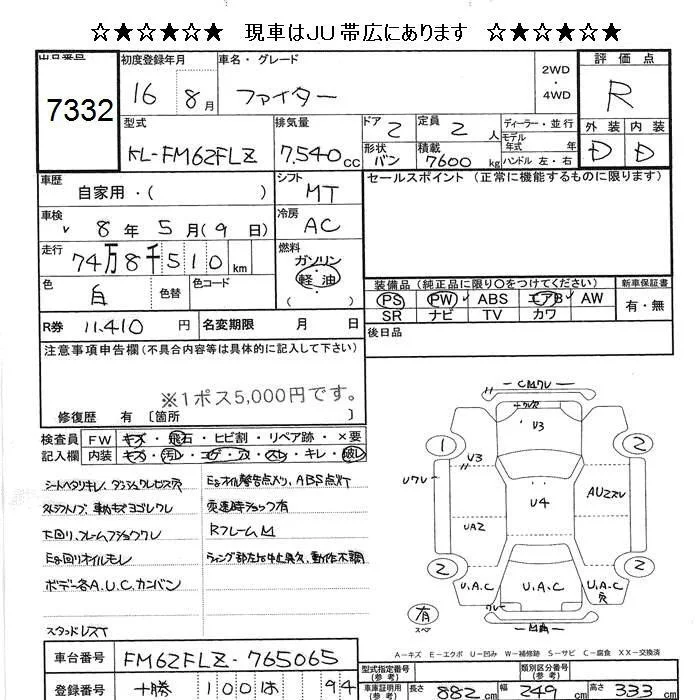 ☆★☆★☆★ 現車はJU帯広にあります ☆★☆★☆★
出品番号 初度登録年月 車名・グレード 2WD・4WD 評価点
7332 16 8月 ファイター R
型式 排気量 ドア 2 定員 2人 ディーラー・並行 外装 内装
KL-FM62FLZ 7,540cc 形状 バン 積載 7600kg モデル年式 年 ハンドル 左・右 D D
車歴 自家用・( ) シフト MT セールスポイント (正常に機能するものに限ります)
車検 8年5月(9日) 冷房 AC
走行 74万8千510km 燃料 ガソリン・軽油 ( )
色 白 色替 色コード 装備品 (純正品に限り○をつけてください) 新車保証書
PS PW ABS エアB AW 有・無
SR ナビ TV カワ
R券 11.410円 名変期限 月 日 後日品
注意事項申告欄 (不具合内容等は具体的に記入して下さい)
※1ポス5,000円です。
修復歴 有 〔箇所 〕
検査員 FW キズ・飛石・ヒビ割・リペア跡・×要
記入欄 内装 キズ・汚レ・コゲ・穴・スレ・キレ・破レ
シートヘタリキレ、ダッシュワレビス穴
下回リ、フレームフショクワレ
Eg回リオイルモレ
ボデー各A.U.C.カンバン
スタッドレスT
Egオイル警告点入リ、ABS点灯
変速時ショック有
RフレームM
CMワレ
U3
U3
U4
Uワレ
UA2
AUスレ
U.A.C
U.A.C
U.A.C 穴
ワレ
1 2 2 2
有 スペア
A-キズ E-エクボ U-凹み W-補修跡 S-サビ C-腐食 XX-交換済
車台番号 FM62FLZ-765065
型式指定番号(参考) 類別区分番号(参考)
登録番号 十勝 100 は 94
車庫証明用(参考) 長さ 882cm 幅 249cm 高さ 333cm